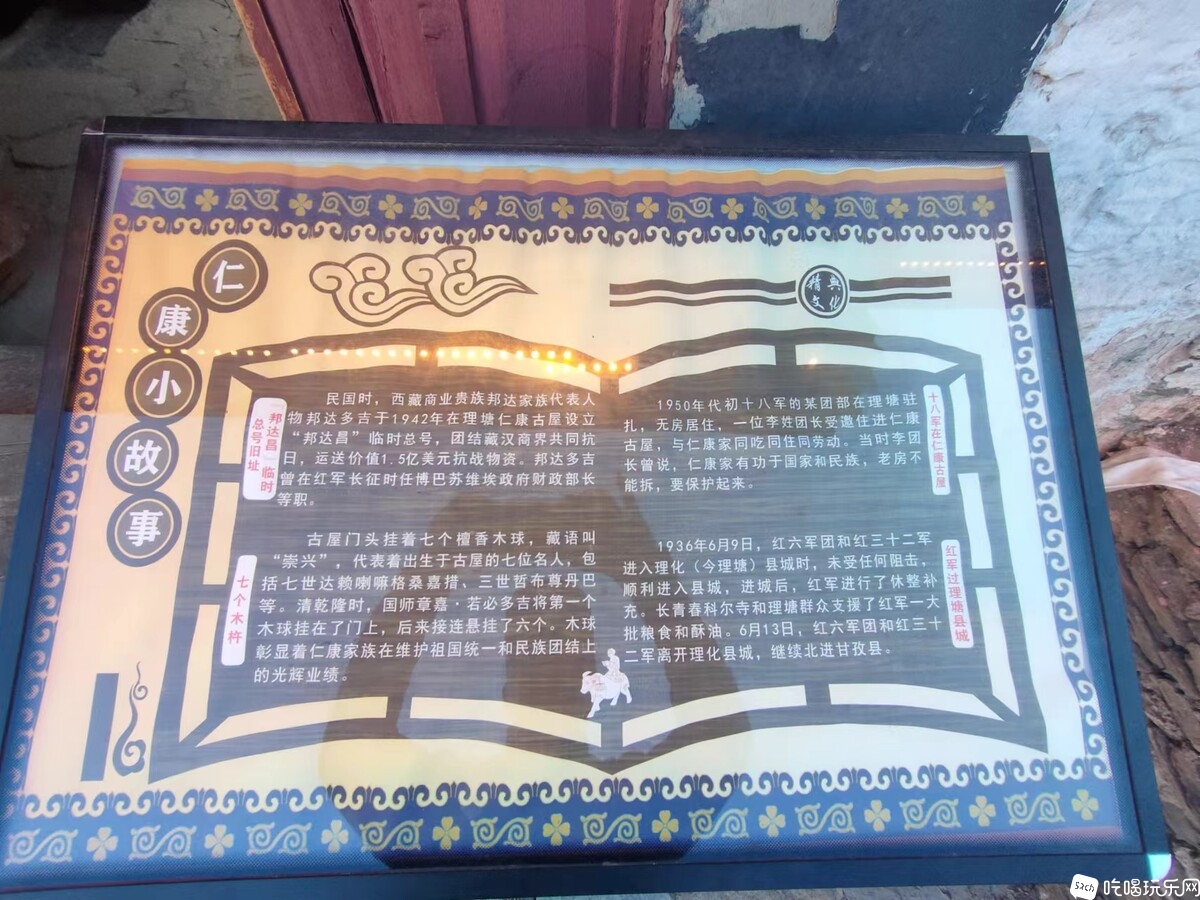 仁康小故事
精典
文化
邦达昌 临时
总号旧址
民国时，西藏商业贵族邦达家族代表人
物邦达多吉于1942年在理塘仁康古屋设立
“邦达昌”临时总号，团结藏汉商界共同抗
日，运送价值1.5亿美元抗战物资。邦达多吉
曾在红军长征时任博巴苏维埃政府财政部长
等职。
七个木杵
古屋门头挂着七个檀香木球，藏语叫
“崇兴”，代表着出生于古屋的七位名人，包
括七世达赖喇嘛格桑嘉措、三世哲布尊丹巴
等。清乾隆时，国师章嘉·若必多吉将第一个
木球挂在了门上，后来接连悬挂了六个。木球
彰显着仁康家族在维护祖国统一和民族团结上
的光辉业绩。
十八军在仁康古屋
1950年代初十八军的某团部在理塘驻
扎，无房居住，一位李姓团长受邀住进仁康
古屋，与仁康家同吃同住同劳动。当时李团
长曾说，仁康家有功于国家和民族，老房不
能拆，要保护起来。
红军过理塘县城
1936年6月9日，红六军团和红三十二军
进入理化（今理塘）县城时，未受任何阻击，
顺利进入县城，进城后，红军进行了休整补
充。长青春科尔寺和理塘群众支援了红军一大
批粮食和酥油。6月13日，红六军团和红三十
二军离开理化县城，继续北进甘孜县。
52ch 吃喝玩乐网